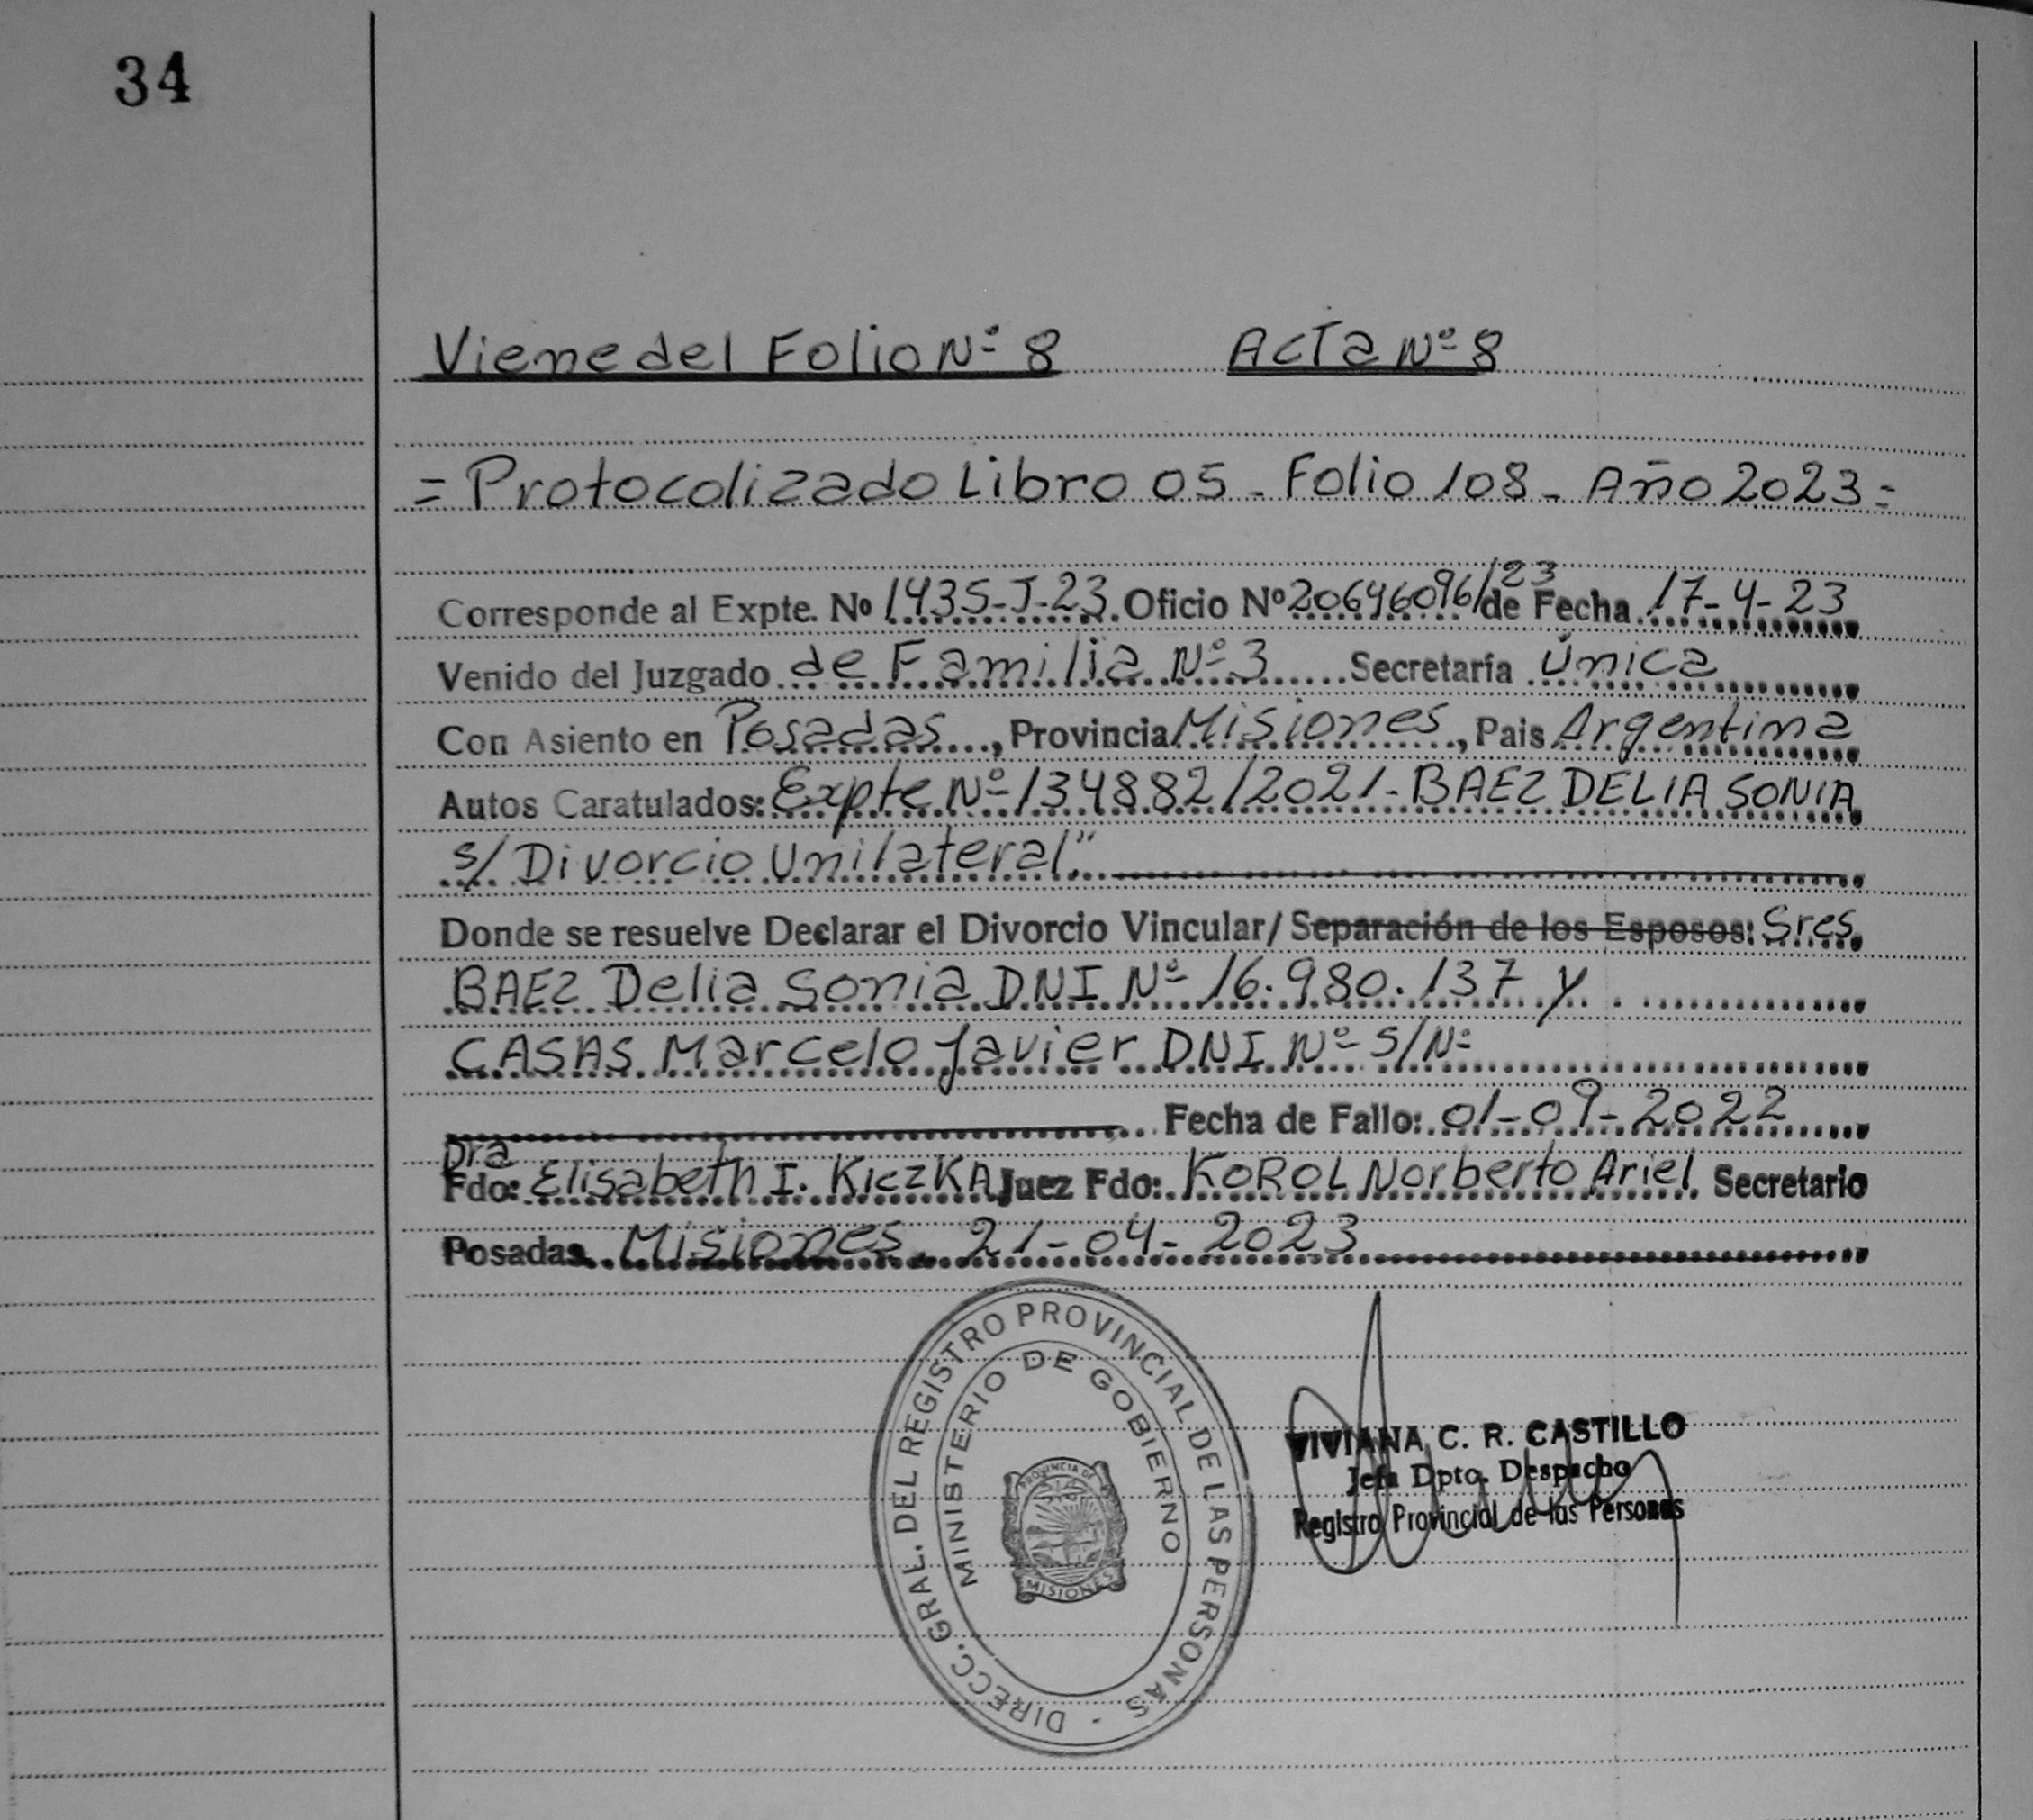 34
Viene del Folio Nº 8 Acta Nº 8
= Protocolizado Libro 05 - Folio 108 - Año 2023 =
Corresponde al Expte. Nº 1435-J-23. Oficio Nº 20646096/23 de Fecha 17-4-23
Venido del Juzgado de Familia Nº 3 Secretaría Única
Con Asiento en Posadas, Provincia Misiones, Pais Argentina
Autos Caratulados: Expte Nº 134882/2021 - BAEZ DELIA SONIA
s/ Divorcio Unilateral".
Donde se resuelve Declarar el Divorcio Vincular/ Separación de los Esposos: Sres.
BAEZ Delia Sonia DNI Nº 16.980.137 y
CASAS Marcelo Javier DNI Nº S/Nº
Fecha de Fallo: 01-09-2022
Dra
Fdo: Elisabeth I. KiczKA Juez Fdo: KOROL Norberto Ariel. Secretario
Posadas Misiones, 21-04-2023
DIRECC. GRAL. DEL REGISTRO PROVINCIAL DE LAS PERSONAS -
MINISTERIO DE GOBIERNO
PROVINCIA DE
MISIONES
VIVIANA C. R. CASTILLO
Jefa Dpto. Despacho
Registro Provincial de las Personas